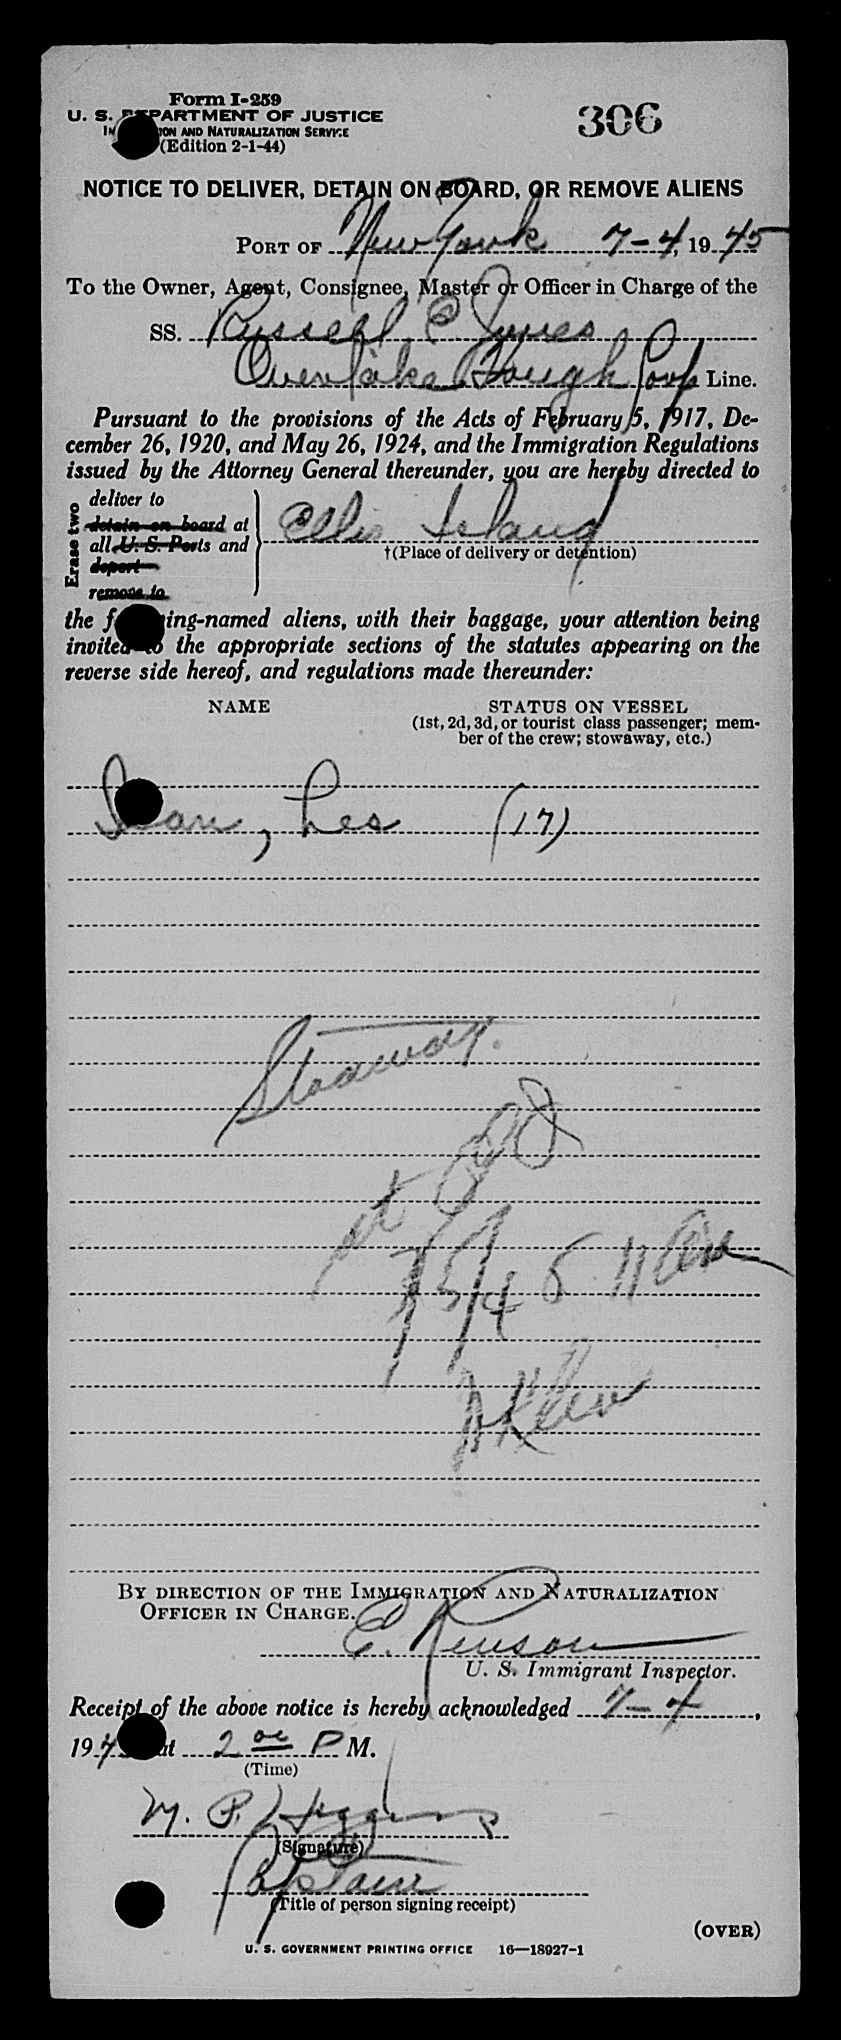 Form I-259
306
U. S. DEPARTMENT OF JUSTICE
ION AND NATURALIZATION SERVICE
(Edition 2-1-44)
NOTICE TO DELIVER, DETAIN ON BOARD, OR REMOVE ALIENS
PORT OF New York 7-4, 1945
To the Owner, Agent, Consignee, Master or Officer in Charge of the
SS. Russell C Jones
Overlakes Line.
Pursuant to the provisions of the Acts of February 5, 1917, De-
cember 26, 1920, and May 26, 1924, and the Immigration Regulations
issued by the Attorney General thereunder, you are hereby directed to
Erase two
deliver to
detain on board at
all U. S. Ports and
deport
remove to
Ellis Island
†(Place of delivery or detention)
the following-named aliens, with their baggage, your attention being
invited to the appropriate sections of the statutes appearing on the
reverse side hereof, and regulations made thereunder:
NAME STATUS ON VESSEL
(1st, 2d, 3d, or tourist class passenger; mem-
ber of the crew; stowaway, etc.)
, Les (17)
Stoaway.
at
7/5/45 11 AM
By direction of the Immigration and Naturalization
Officer in Charge.
E.
U. S. Immigrant Inspector.
Receipt of the above notice is hereby acknowledged 7-4,
194 at 2 oo P M.
(Time)
M. P. Higgins
(Signature)
Captain
(Title of person signing receipt)
(OVER)
U. S. GOVERNMENT PRINTING OFFICE 16—18927-1